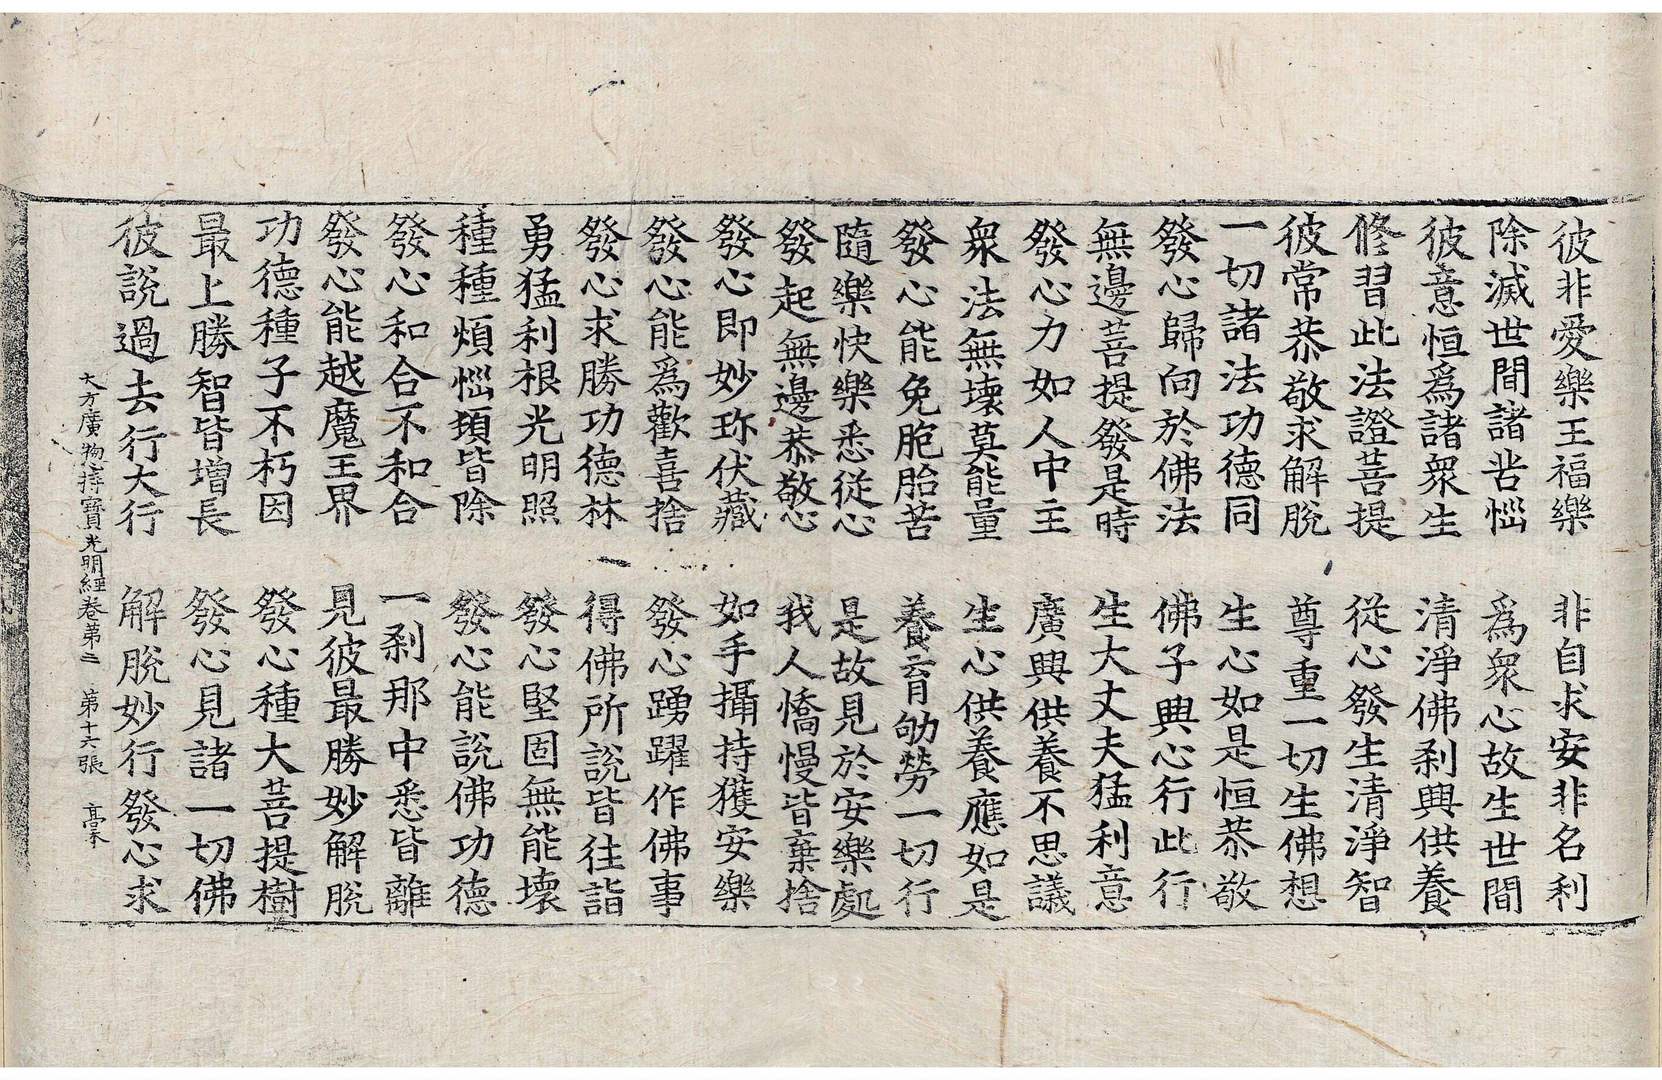 彼非愛樂王福樂　非自求安非名利
除滅世間諸苦惱　爲衆心故生世間
彼意恒爲諸衆生　清淨佛剎興供養
修習此法證菩提　從心發生清淨智
彼常恭敬求解脫　尊重一切生佛想
一切諸法功德同　生心如是恒恭敬
發心歸向於佛法　佛子興心行此行
無邊菩提發是時　生大丈夫猛利意
發心力如人中主　廣興供養不思議
衆法無壞莫能量　生心供養應如是
發心能免胞胎苦　養育劬勞一切行
隨樂快樂悉從心　是故見於安樂處
發起無邊恭敬心　我人憍慢皆棄捨
發心即妙珎伏藏　如手攝持獲安樂
發心能爲歡喜捨　發心踴躍作佛事
發心求勝功德林　得佛所說皆往詣
勇猛利根光明照　發心堅固無能壞
種種煩惱頚皆除　發心能說佛功德
發心和合不和合　一剎那中悉皆離
發心能越魔王界　見彼最勝妙解脫
功德種子不朽因　發心種大菩提樹
最上勝智皆增長　發心見諸一切佛
彼說過去行大行　解脫妙行發心求
大方廣揔持寶光明經卷第三　第十六張